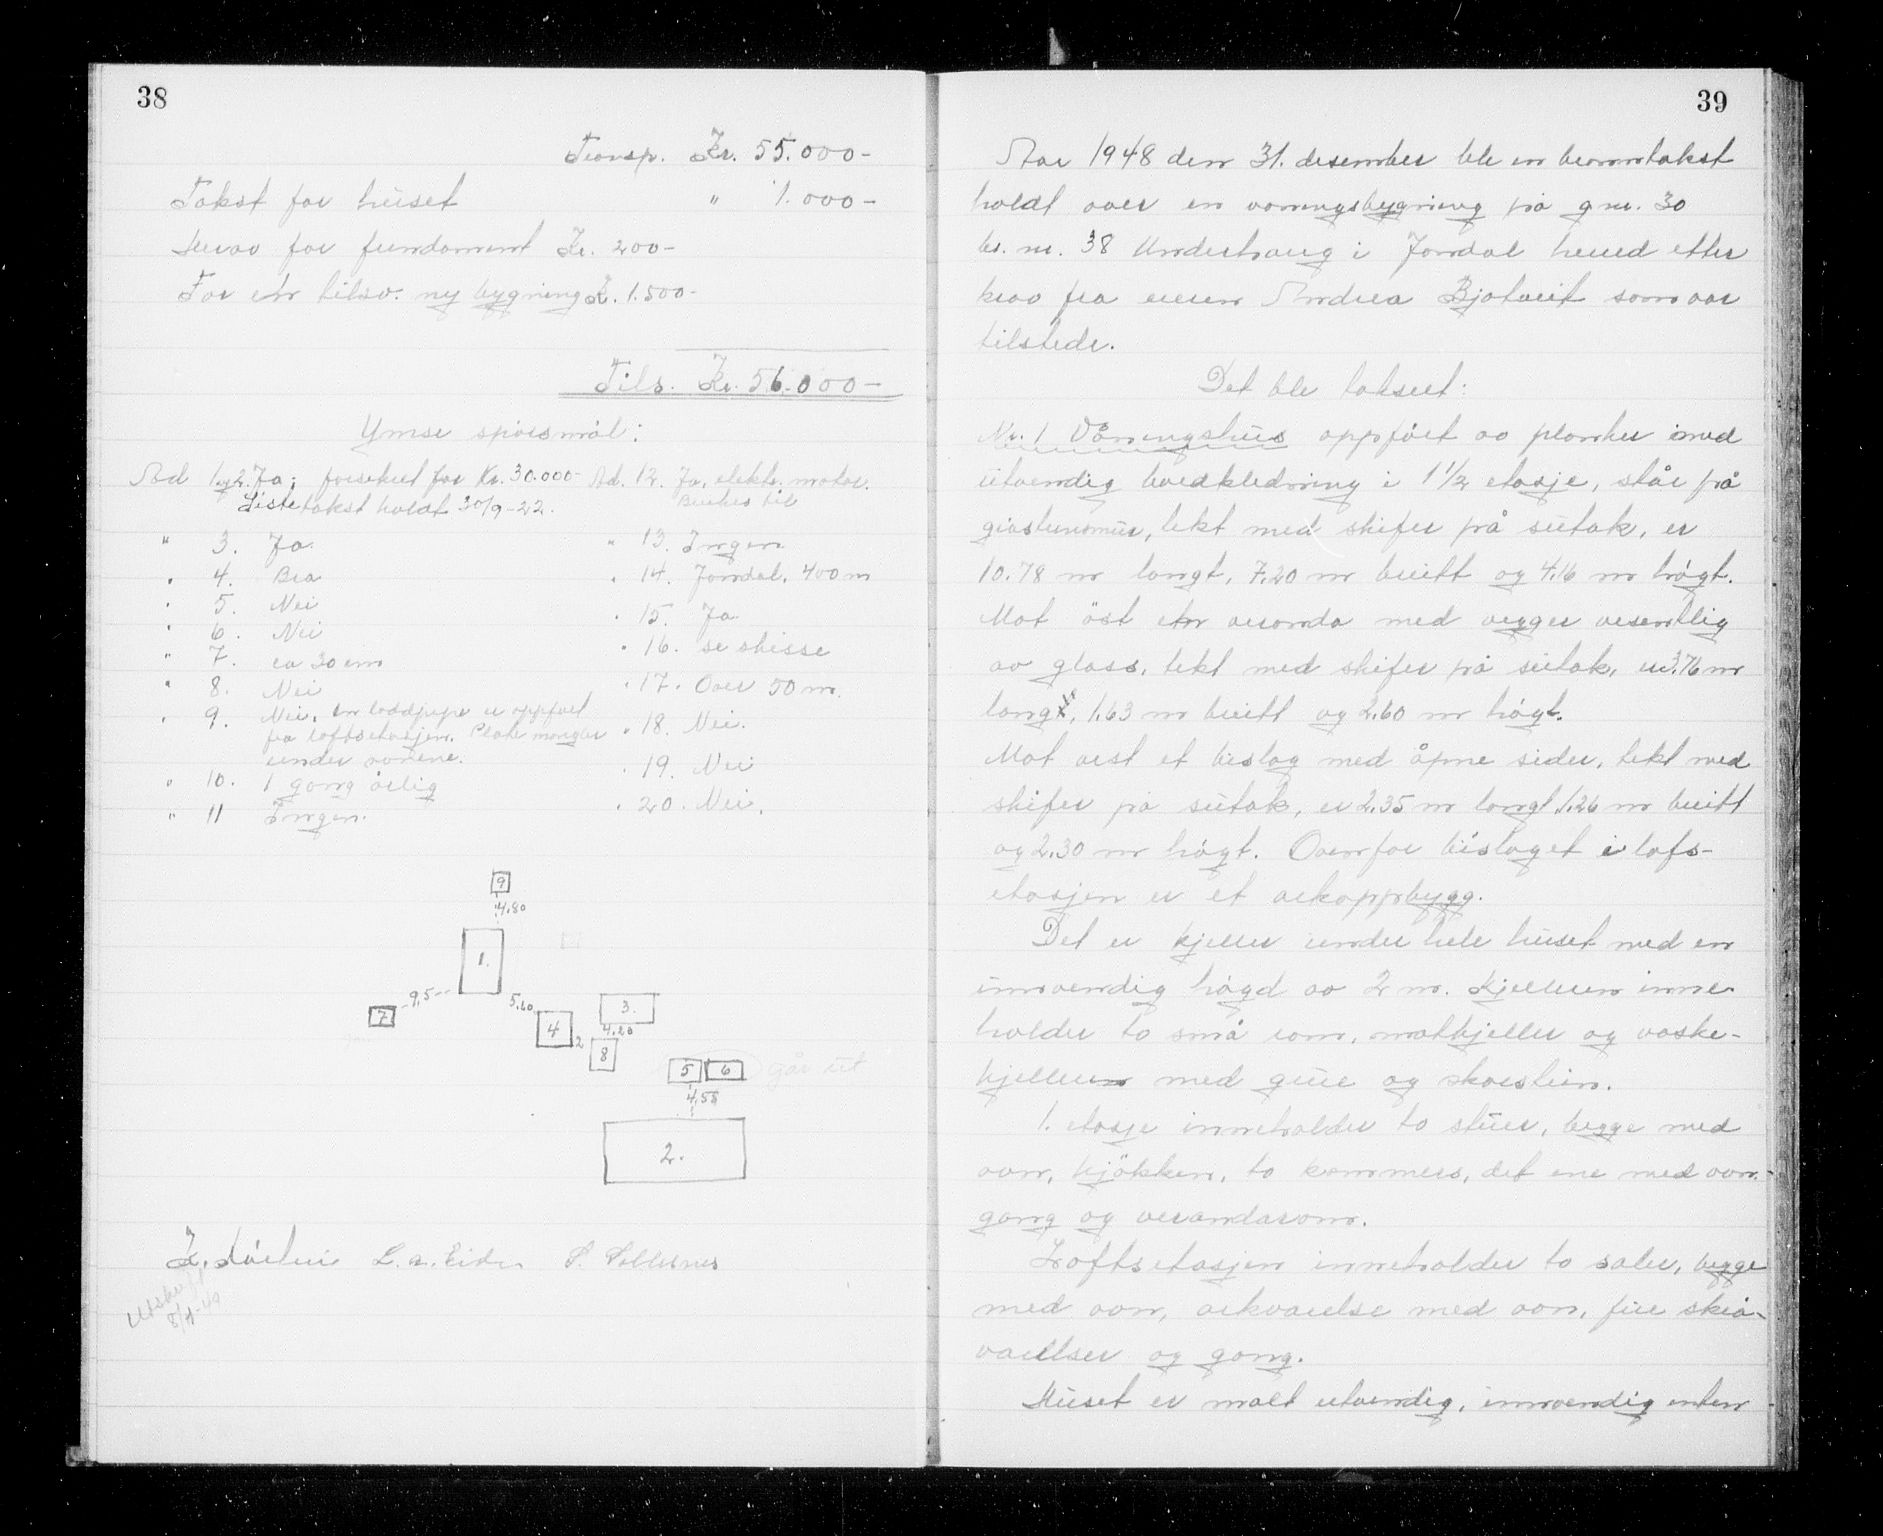 38
Transp. Kr. 55.000-
Takst for huset " 1.000-
Herav for fundament Kr. 200-
For ein tilsv. ny bygning Kr. 1.500-
Tils. Kr. 56.000-
Ymse spörsmål:
Ad 1 og 2. Ja; forsikret for Kr. 30.000-
Siste takst holdt 30/9-22.
" 3. Ja.
" 4. Bra
" 5. Nei
" 6. Nei
" 7. ca 30 cm
" 8. Nei
" 9. Nei, en loddpipe er oppfört
fra loftsetasjen. Plate mangler
under ovnene.
" 10. 1 gang årlig
" 11 Ingen.
Ad. 12. Ja, elektr. motor.
Brukes til
" 13. Ingen.
" 14. Jondal, 400 m
" 15. Ja
" 16. se skisse
" 17. Over 50 m.
" 18. Nei.
" 19. Nei
" 20. Nei.
9
4.80
1.
9,5
5.60
7
4
2
3.
4.20
8
5 6 går ut
4.58
2.
L. A. Eide S. Sollesnes
Utskrift
39
Aar 1948 den 31. desember ble en branntakst
holdt over en våningsbygning på gnr. 30
br. nr. 38 Underhaug i Jondal herred etter
krav fra eieren Andrea Bjotveit som var
tilstede.
Det ble taksert:
Nr. 1 Våningshus oppfört av planker med
utvendig bordkledning i 1 1/2 etasje, står på
gråsteinsmur, tekt med skifer på sutak, er
10.78 m langt, 7.20 m breitt og 4.16 m högt.
Mot öst en veranda med vegger vesentlig
av glass, tekt med skifer på sutak, er 3.76 m
lang, 1.63 m breitt og 2.60 m högt.
Mot vest et bislag med åpne sider, tekt med
skifer på sutak, er 2.35 m langt 1.26 m breitt
og 2.30 m högt. Ovenfor bislaget i lofs-
etasjen er et arkoppbygg.
Det er kjeller under hele huset med en
innvendig högd av 2 m. Kjelleren inne-
holder to små rom, matkjeller og vaske-
kjelleren med grue og skorstein.
1. etasje inneholder to stuer, begge med
ovn, kjökken, to kammers, det ene med ovn.
gang og verandarom.
Loftsetasjen inneholder to saler, begge
med ovn, arkværelse med ovn, fire skrå-
værelser og gang.
Huset er malt utvendig, innvendig enten